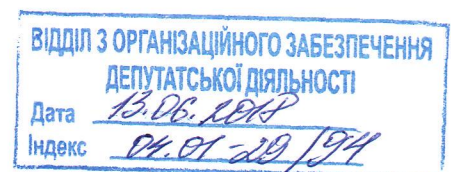 ВІДДІЛ З ОРГАНІЗАЦІЙНОГО ЗАБЕЗПЕЧЕННЯ
ДЕПУТАТСЬКОЇ ДІЯЛЬНОСТІ
Дата 13.06.2018
Індекс 04.01-29/94